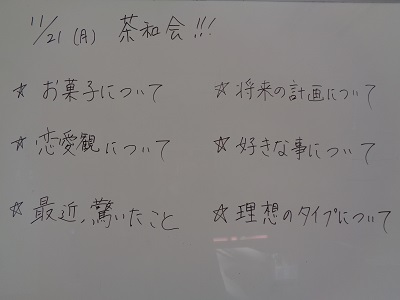 11/21 (月) 茶和会!!!
☆ お菓子について
☆ 将来の計画について
☆ 恋愛観について
☆ 好きな事について
☆ 最近、驚いたこと
☆ 理想のタイプについて